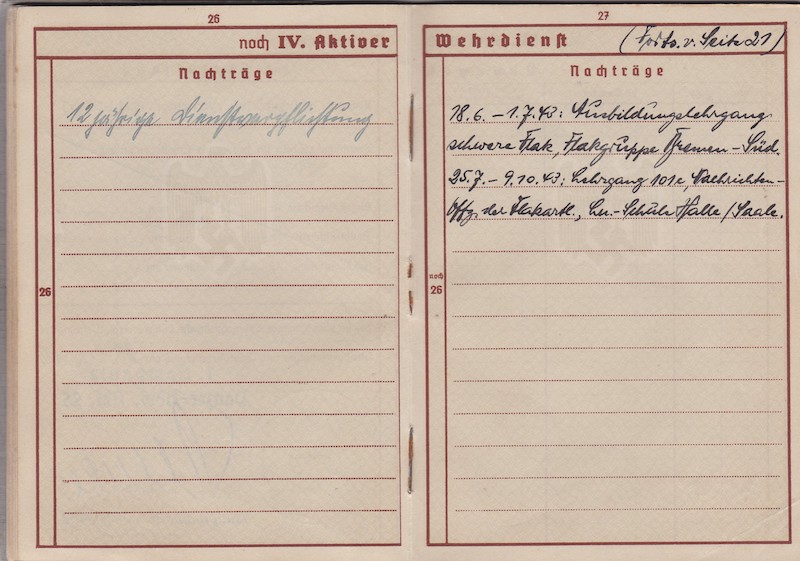 26
noch IV. Aktiver
Nachträge
12 jährige Dienstverpflichtung
26
27
Wehrdienst (Forts. v. Seite 21)
Nachträge
18.6. – 1.7.43: Ausbildungslehrgang
schwere Flak, Flakgruppe Bremen – Süd.
25.7. – 9.10.43: Lehrgang 101c, Nachrichten-
Offz. der Flakartl., Ln.-Schule Halle/Saale.
noch
26